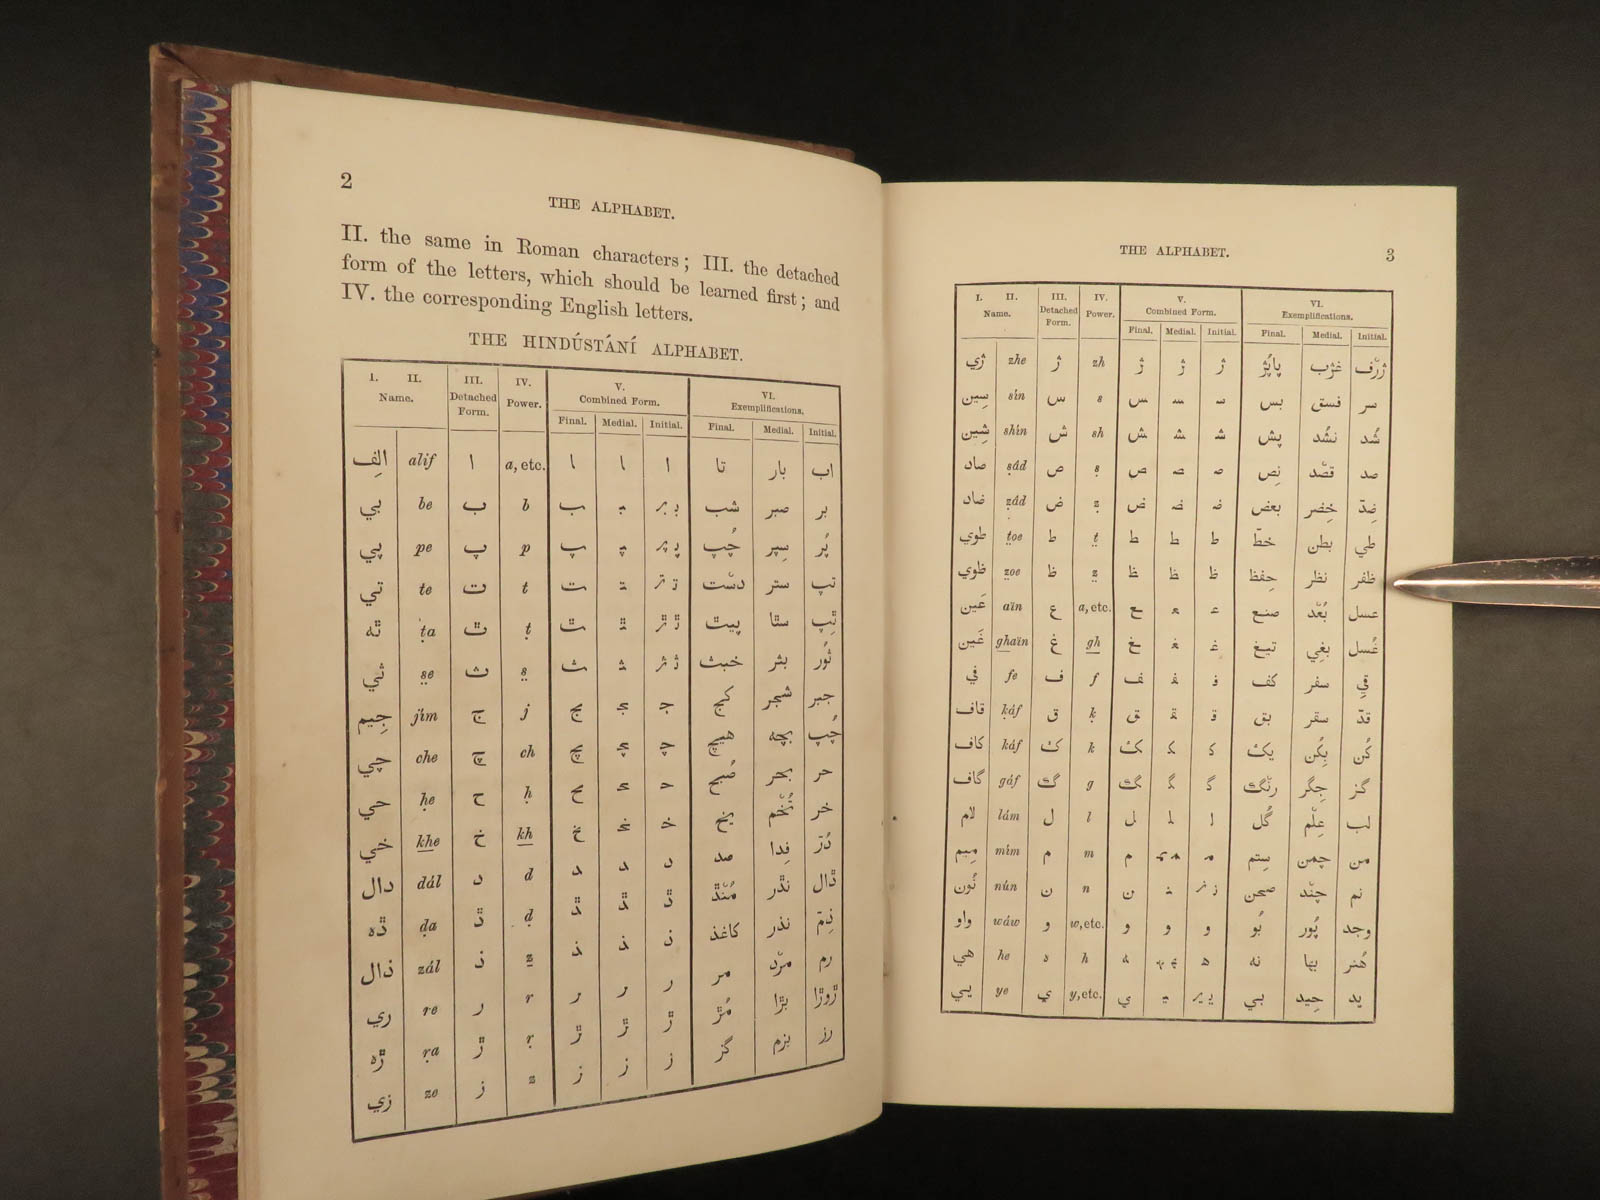 2
THE ALPHABET.
II. the same in Roman characters; III. the detached
form of the letters, which should be learned first; and
IV. the corresponding English letters.
THE HINDÚSTÁNÍ ALPHABET.
I. II. III. IV. V. VI.
Name. Detached Form. Power. Combined Form. Exemplifications.
Final. Medial. Initial. Final. Medial. Initial.
الِف alif ا a, etc. ا ا ا تا بار اب
بي be ب b ب شب صبر بر
پي pe پ p پ چُپ سِپر پُر
تي te ت t ت ستر تپ
ta ṭ
ثي s̤e ث s̤ ث خبث بثر ثَور
جِيم jím ج j ج کج شجر جبر
چي che چ ch چ هيچ بچه چُپ
حي ḥe ح ḥ ح صُبح بحر حر
خي khe خ kh خ يخ تُخْم خر
دال dál د d د د د صد فِدا دُرّ
ḍa ḍ
ذال zál ذ z ذ ذ ذ کاغذ نذر ذِمّ
ري re ر r ر ر ر مر مرْد رم
ṛa ṛ
زي ze ز z ز ز ز گز بزم رز
THE ALPHABET.
3
I. II. III. IV. V. VI.
Name. Detached Form. Power. Combined Form. Exemplifications.
Final. Medial. Initial. Final. Medial. Initial.
ژي zhe ژ zh ژ ژ ژ غژب ژرْف
سِين sín س s س بس فسق سر
شِين shín ش sh ش پش نشُد شُد
صاد ṣád ص ṣ ص نِص قصْد صد
ضاد ẓád ض ẓ ض بعض خِضر ضِدّ
طوي t̤oe ط t̤ ط ط ط خطّ بطن طي
ظوي z̤oe ظ z̤ ظ ظ ظ حِفظ نظر ظفر
عَين aïn ع a, etc. ع صنع بُعْد عسل
غَين ghaïn غ gh غ تيغ بغي غُسل
في fe ف f ف کف سفر
قاف ḳáf ق ḳ ق بق سقر قدّ
کاف káf ک k ک يک بِکُن کُن
گاف gáf گ g گ رنْگ جِگر گز
لام lám ل l ل گُل عِلْم لب
مِيم mím م m م سِتم چمن من
نُون nún ن n ن صحن چنْد نم
واو wáw و w, etc. و و و بُو پُور وجد
هي he ه h نه هُنر
يي ye ي y, etc. ي بي جِيد يد